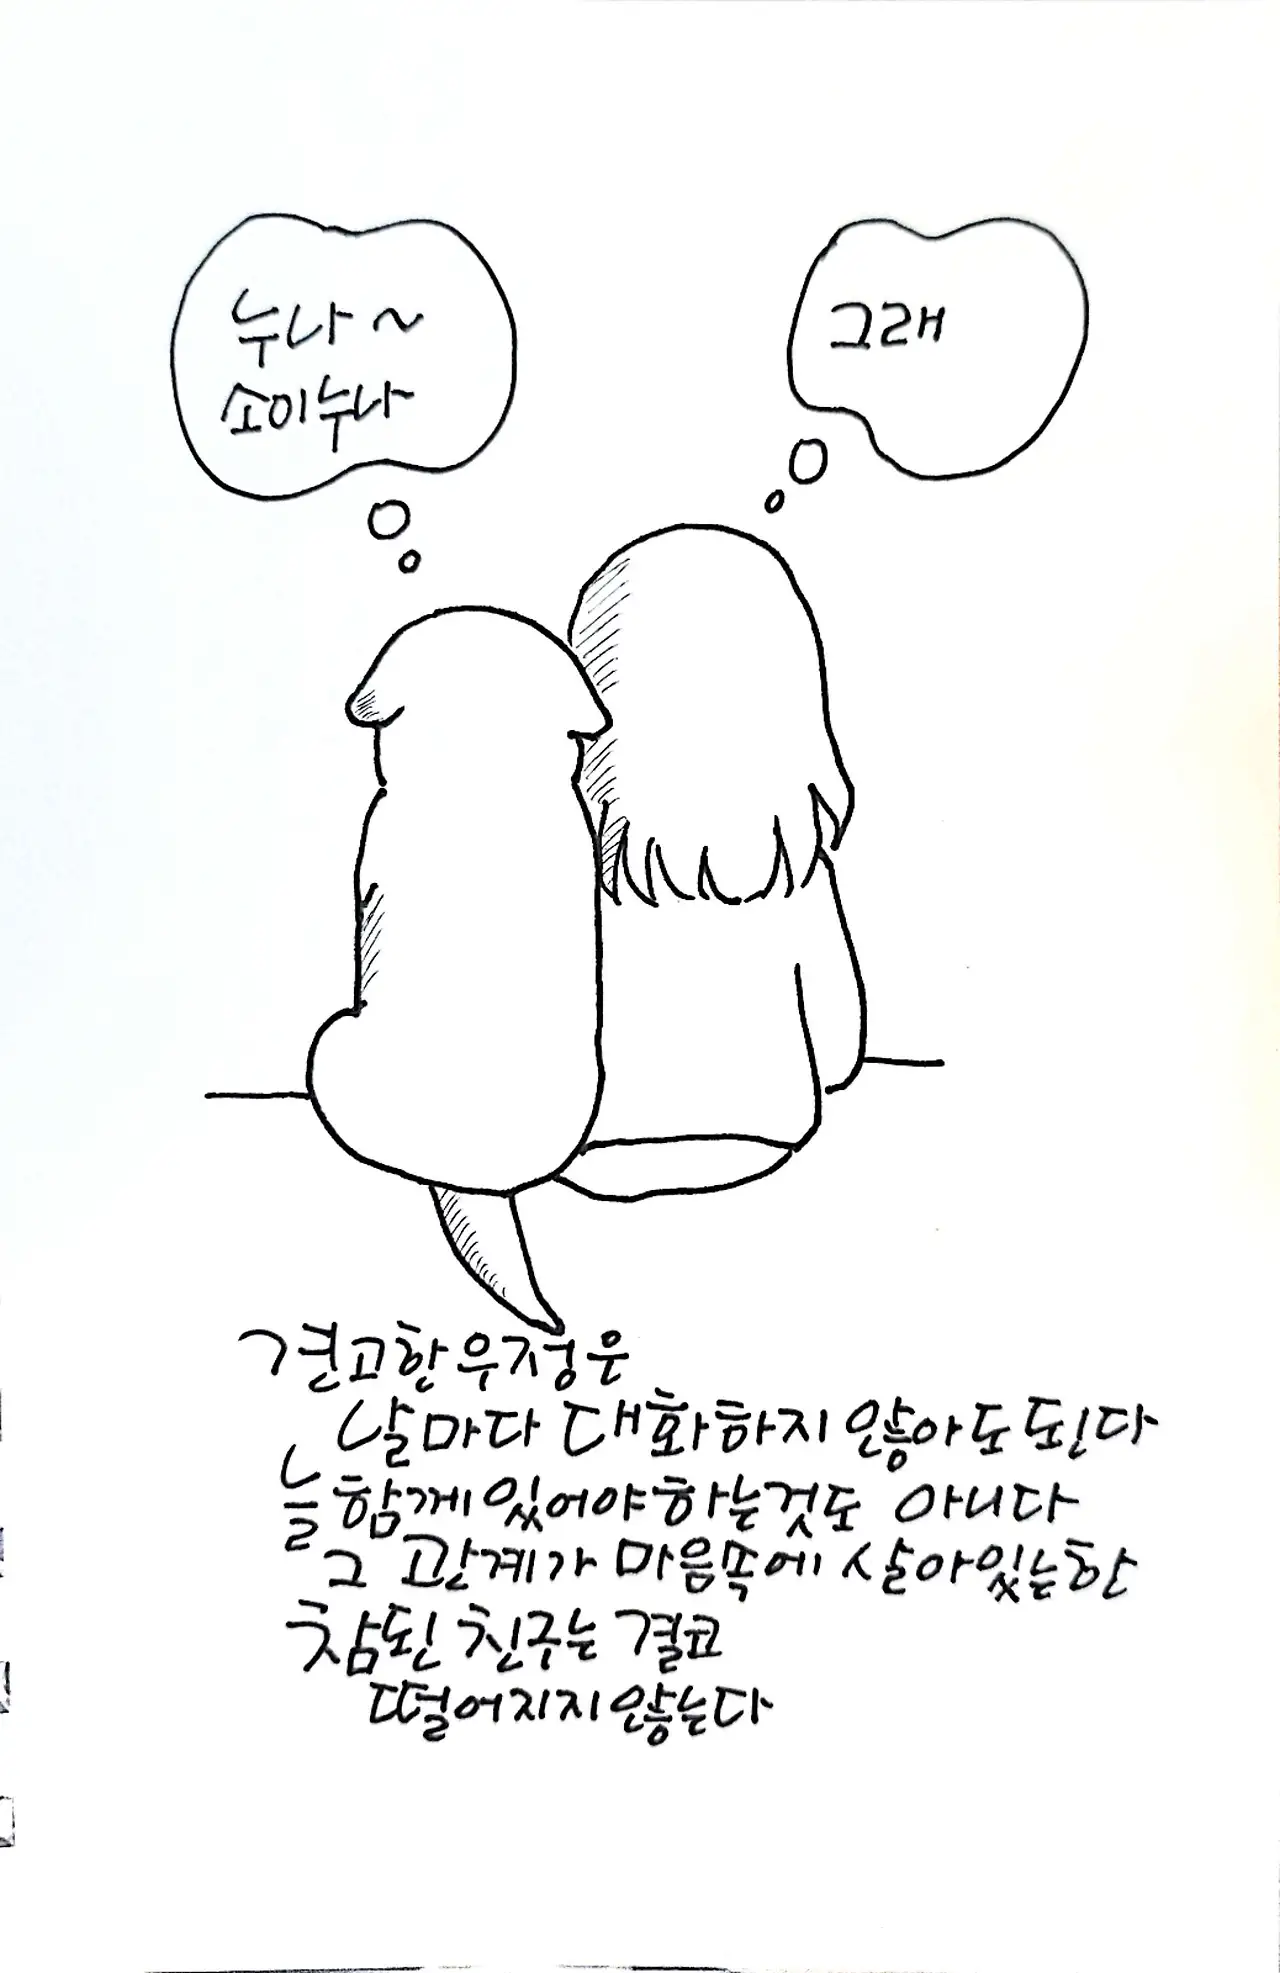 누나~
소이누나
그래
견고한 우정은
날마다 대화하지 않아도 된다
늘 함께 있어야하는것도 아니다
그 관계가 마음속에 살아있는한
참된 친구는 결코
떨어지지 않는다